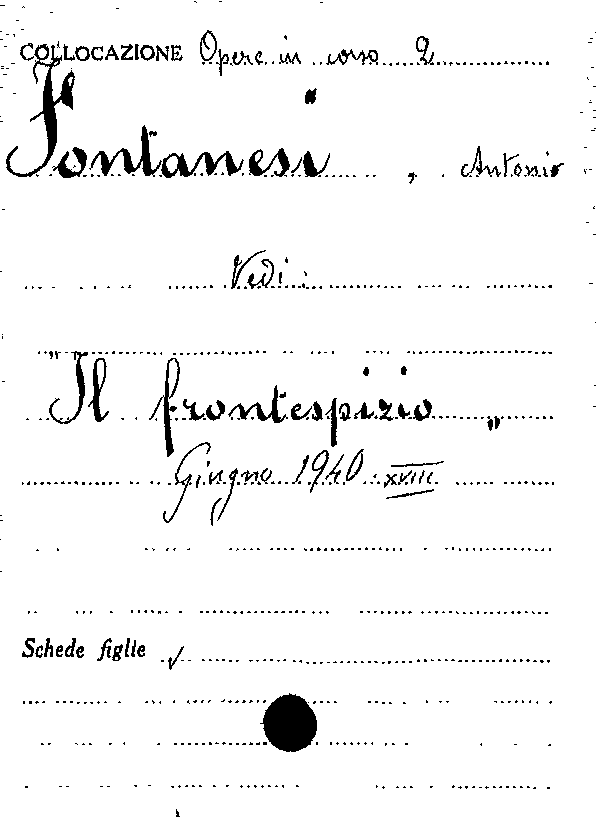 COLLOCAZIONE Opere in corso 2
Fontanesi, Antonio
Vedi:
"Il frontespizio"
Giugno 1940 XVIII
Schede figlie ✓